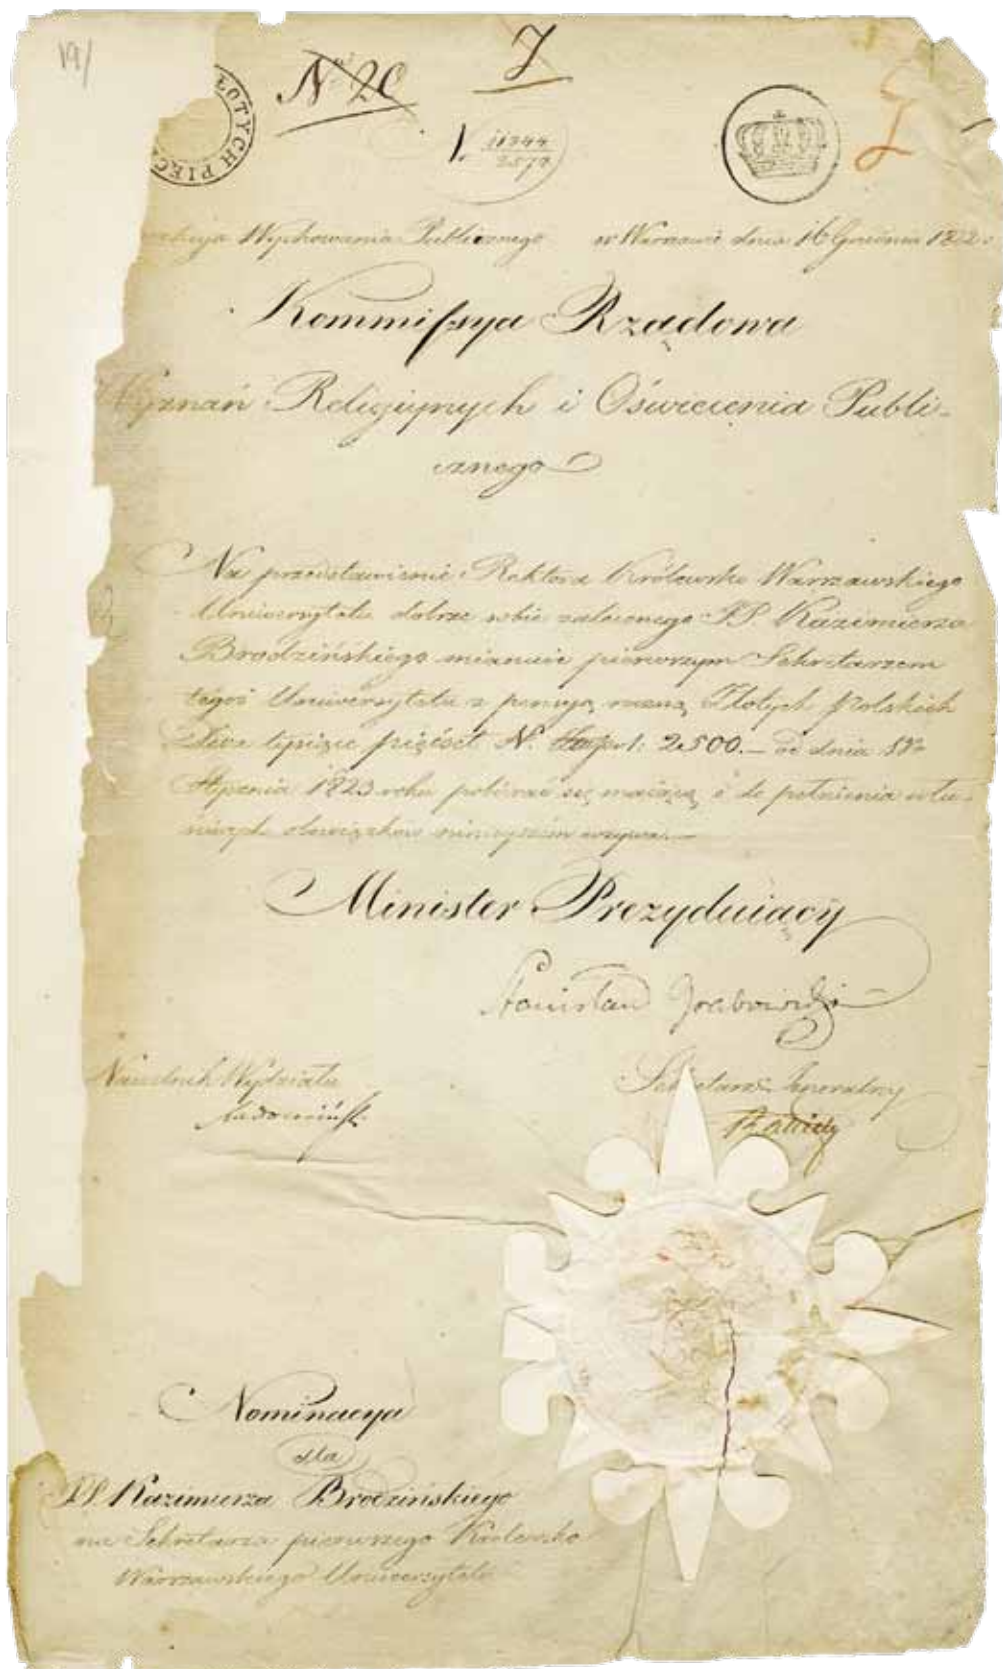 19/
ŁOTYCH PIĘĆ
N 20
J
1. 11344
2570
Wychowania Publicznego w Warszawie dnia 16 Grudnia 1822 r
Kommissya Rządowa
Wyznań Religiynych i Oświecenia Publi-
cznego
Na przedstawienie Rektora Królewsko Warszawskiego
Uniwersytetu dobrze sobie zaleconego JP. Kazimierza
Brodzińskiego mianuie pierwszym Sekretarzem
tegoż Uniwersytetu z pensyą roczną Złotych Polskich
Dwa tysiące pięćset N. 2500.— od dnia 1go
Stycznia 1823 roku pobierać się maiącą i do pełnienia
obowiązków ninieyszém wzywa.—
Minister Prezyduiący
Stanisław Grabowski
Naczelnik Wydziału
Sekretarz Jeneralny
Nominacya
dla
JP Kazimierza Brodzińskiego
na Sekretarza pierwszego Królewsko
Warszawskiego Uniwersytetu